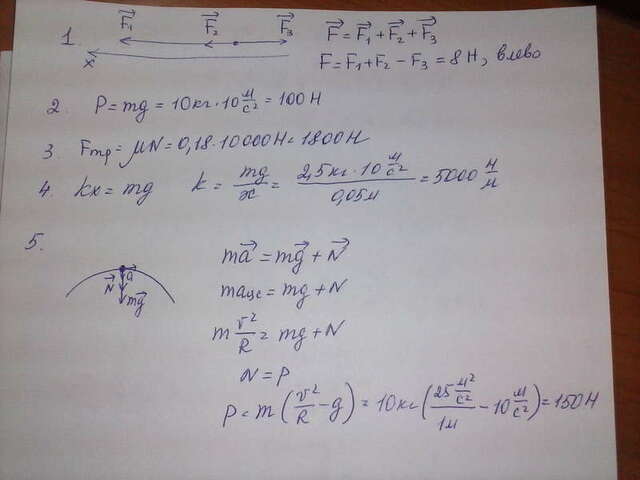 1. F⃗₁ F⃗₂ F⃗₃ F⃗ = F⃗₁ + F⃗₂ + F⃗₃
x F = F₁ + F₂ − F₃ = 8 Н, влево
2. P = mg = 10 кг · 10 м/с² = 100 Н
3. Fтр = μN = 0,18 · 10000 Н = 1800 Н
4. kx = mg k = mg/x = 2,5 кг · 10 м/с² / 0,05 м = 5000 Н/м
5.
ma⃗ = mg⃗ + N⃗
a N⃗ mg⃗
maцс = mg + N
m v²/R = mg + N
N = P
P = m (v²/R − g) = 10 кг (25 м²/с² / 1 м − 10 м/с²) = 150 Н